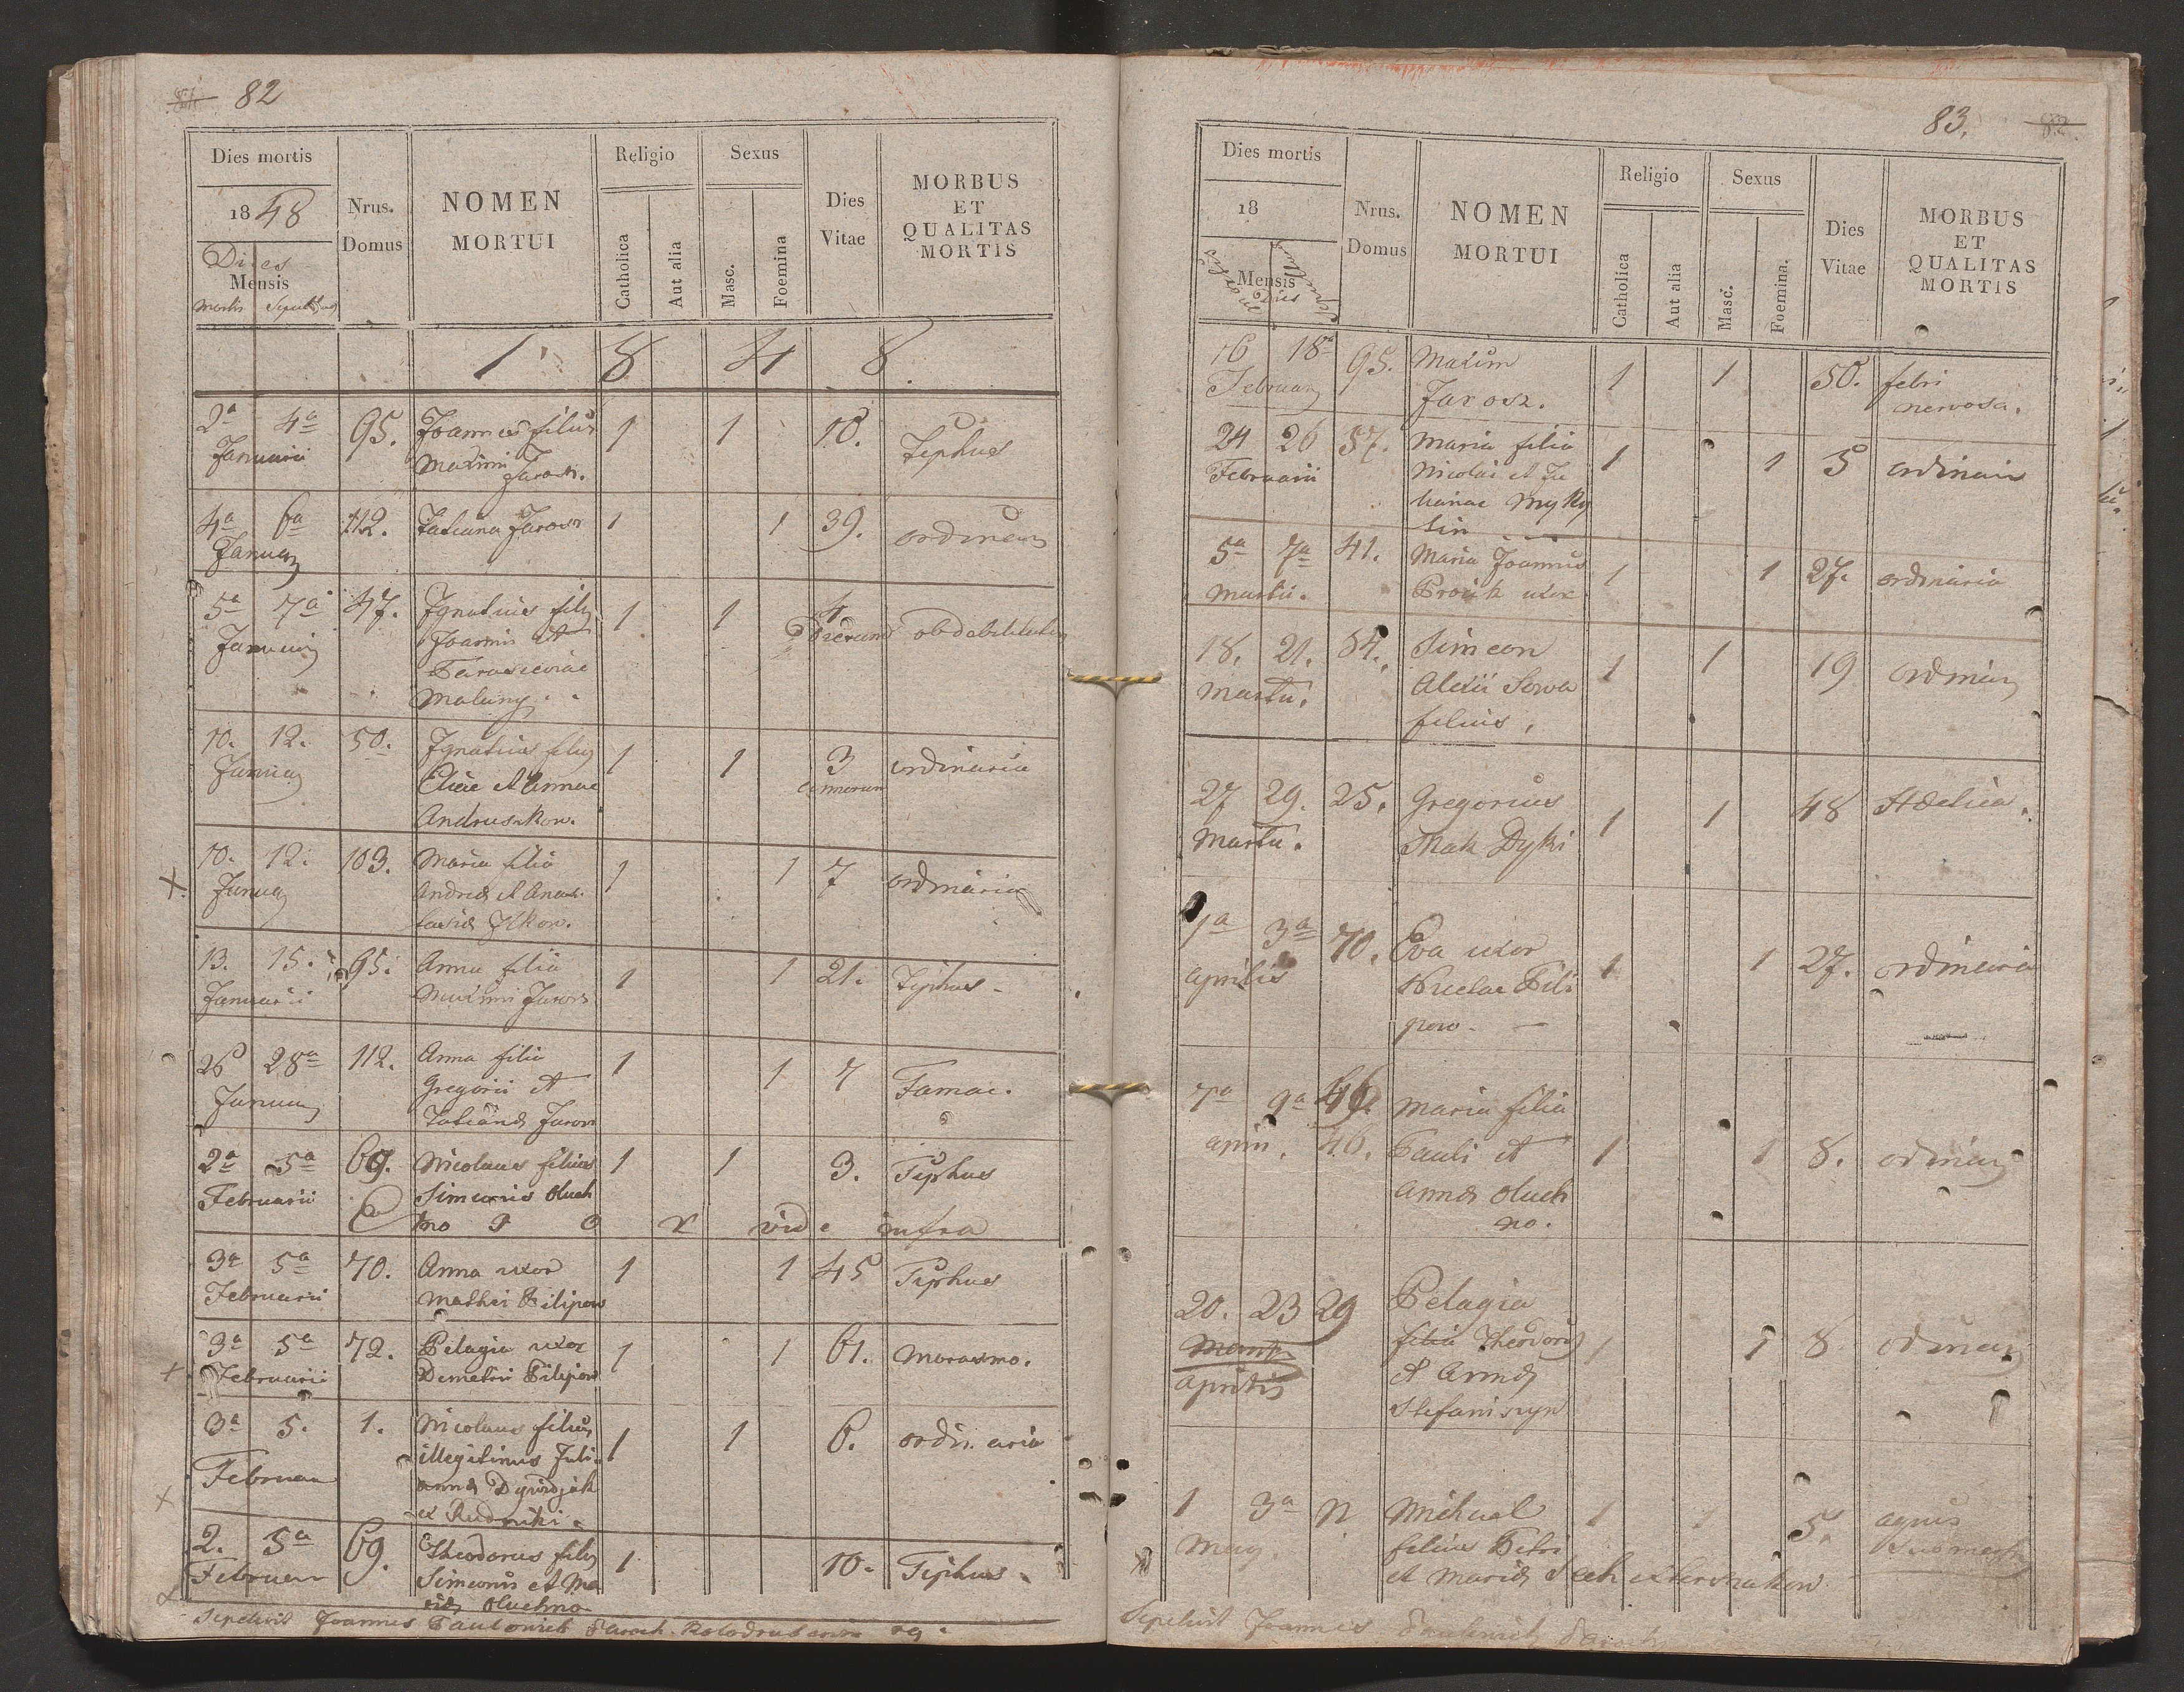 82
Dies mortis
1848
Dies
Mensis
mortis Sepulturae
Nrus.
Domus
NOMEN
MORTUI
Religio
Catholica
Aut alia
Sexus
Masc.
Foemina
Dies
Vitae
MORBUS
ET
QUALITAS
MORTIS
1 8 4 8.
2a 4a 95. Joannes filius 1 1 10. Tiphus
Januarii Maximi
Jarosz.
4a 6a 112. Tatiana Jarosz 1 1 39. ordinaria
Januar
5a 7a 47. Ignatius filius 1 1 4 dierum ob debilitatem
Januarii Joannis et
Parascevae
Maluny
10. 12. 50. Ignatius filius 1 1 3 annorum ordinaria
Januar Eliae et Annae
Andrusikow.
10. 12. 103. Maria filia 1 1 7 ordinaria
Januar Andreae et Anas
tasiae Ilkow.
13. 15. 95. Anna filia 1 1 21. Tiphus
Januarii Maximi Jarosz
26 28a 112. Anna filia 1 1 7 Famae.
Januar Gregorii et
Tatianae Jarosz
2a 5a 69. Nicolaus filius 1 1 3. Tiphus
Februarii Simeonis Oluch
no vide infra
3a 5a 70. Anna uxor 1 1 45 Tiphus
Februarii Mathei Filipow
3a 5a 72. Pelagia uxor 1 1 61. Marasmo.
Februarii Demetri Filipow
3a 5. 1. Nicolaus filius 1 1 6. ordinaria
Februar illegitimus Juli
annae
ex Rudniki
2. 5a 69. Theodorus filius 1 10. Tiphus
Februar Simeonis et Ma
riae Oluchno
Sepelivit Joannes Paulowich Paroch.
83.
Dies mortis
18
Mensis
Dies
Nrus.
Domus
NOMEN
MORTUI
Religio
Catholica
Aut alia
Sexus
Masc.
Foemina.
Dies
Vitae
MORBUS
ET
QUALITAS
MORTIS
16 18a 95. Maxim 1 1 50. febri
Februar Jarosz. nervosa.
24 26 57. Maria filia 1 1 5 ordinaria
Februarii Nicolai et Ju
lianae Myky
sin
5a 7a 41. Maria Joannis 1 1 27. ordinaria
Martii. Procik uxor
18. 21. 54. Simeon 1 1 19 ordinar
Martii. Alexii Sowa
filius.
27 29. 25. Gregorius 1 1 48 Hectica.
Martii. Dyki
1a 3a 70. Eva uxor 1 1 27. ordinaria
Aprilis Fili
pow
7a 9a 46. Maria filia
Apri. 46. Pauli et 1 1 8. ordinar
Annae Oluch
no.
20. 23 29 Pelagia
filia Theodori 1 1 8 ordinar
Aprilis et Annae
Stefaniszyn
1 3a Michael 1 1 5. aquis
May. filius Petri submersus
et Mariae
Sepelivit Joannes Paulowich Paroch